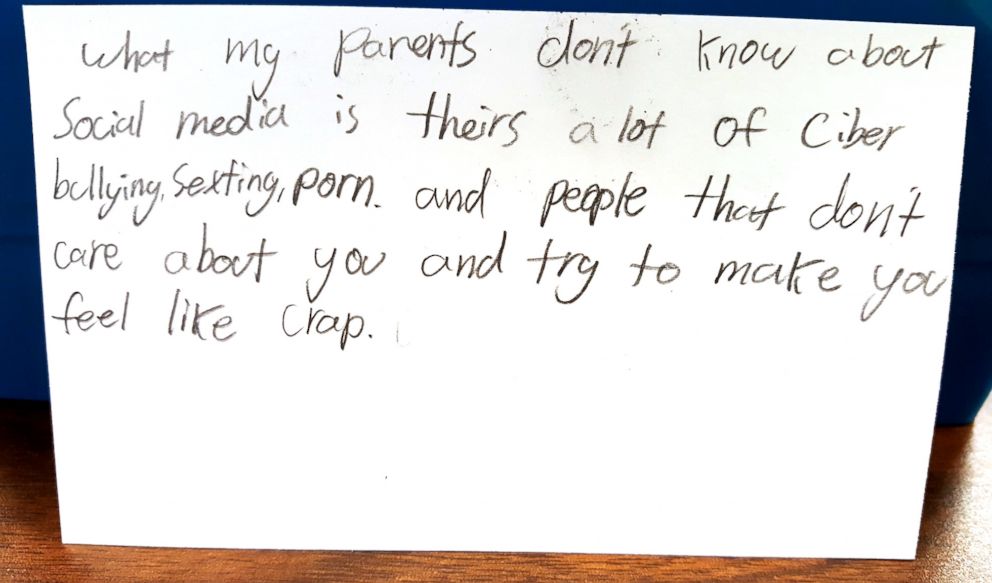 What my parents don't know about
Social media is theirs a lot of Ciber
bullying, Sexting, porn. and people that don't
care about you and try to make you
feel like crap.